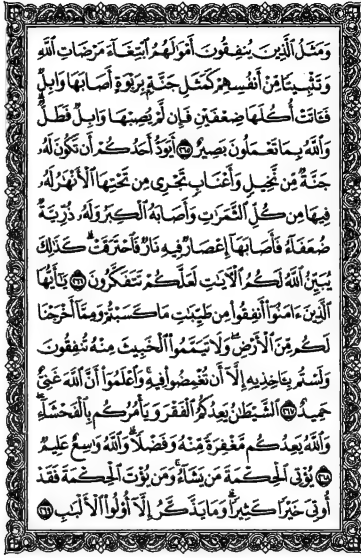 وَمَثَلُ الَّذِينَ يُنفِقُونَ أَمْوَالَهُمُ ابْتِغَاءَ مَرْضَاتِ اللَّهِ
وَتَثْبِيتًا مِّنْ أَنفُسِهِمْ كَمَثَلِ جَنَّةٍ بِرَبْوَةٍ أَصَابَهَا وَابِلٌ
فَآتَتْ أُكُلَهَا ضِعْفَيْنِ فَإِن لَّمْ يُصِبْهَا وَابِلٌ فَطَلٌّ
وَاللَّهُ بِمَا تَعْمَلُونَ بَصِيرٌ ٢٦٥ أَيَوَدُّ أَحَدُكُمْ أَن تَكُونَ لَهُ
جَنَّةٌ مِّن نَّخِيلٍ وَأَعْنَابٍ تَجْرِي مِن تَحْتِهَا الْأَنْهَارُ لَهُ
فِيهَا مِن كُلِّ الثَّمَرَاتِ وَأَصَابَهُ الْكِبَرُ وَلَهُ ذُرِّيَّةٌ
ضُعَفَاءُ فَأَصَابَهَا إِعْصَارٌ فِيهِ نَارٌ فَاحْتَرَقَتْ ۗ كَذَٰلِكَ
يُبَيِّنُ اللَّهُ لَكُمُ الْآيَاتِ لَعَلَّكُمْ تَتَفَكَّرُونَ ٢٦٦ يَا أَيُّهَا
الَّذِينَ آمَنُوا أَنفِقُوا مِن طَيِّبَاتِ مَا كَسَبْتُمْ وَمِمَّا أَخْرَجْنَا
لَكُم مِّنَ الْأَرْضِ ۖ وَلَا تَيَمَّمُوا الْخَبِيثَ مِنْهُ تُنفِقُونَ
وَلَسْتُم بِآخِذِيهِ إِلَّا أَن تُغْمِضُوا فِيهِ ۚ وَاعْلَمُوا أَنَّ اللَّهَ غَنِيٌّ
حَمِيدٌ ٢٦٧ الشَّيْطَانُ يَعِدُكُمُ الْفَقْرَ وَيَأْمُرُكُم بِالْفَحْشَاءِ ۖ
وَاللَّهُ يَعِدُكُم مَّغْفِرَةً مِّنْهُ وَفَضْلًا ۗ وَاللَّهُ وَاسِعٌ عَلِيمٌ
٢٦٨ يُؤْتِي الْحِكْمَةَ مَن يَشَاءُ ۚ وَمَن يُؤْتَ الْحِكْمَةَ فَقَدْ
أُوتِيَ خَيْرًا كَثِيرًا ۗ وَمَا يَذَّكَّرُ إِلَّا أُولُو الْأَلْبَابِ ٢٦٩